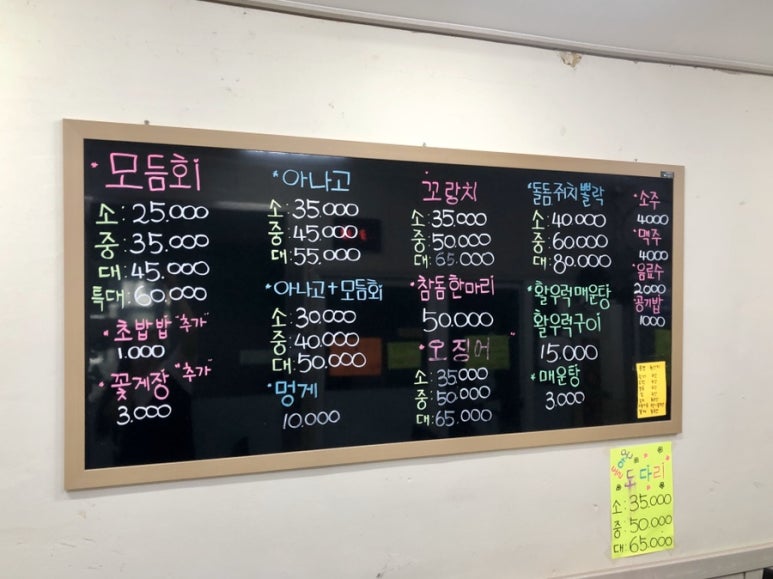 모듬회
소: 25.000
중: 35.000
대: 45.000
특대: 60.000
초밥밥 "추가"
1.000
꽃게장 "추가"
3.000
아나고
소: 35.000
중: 45.000
대: 55.000
아나고+모듬회
소: 30.000
중: 40.000
대: 50.000
멍게
10.000
꼬랑치
소: 35.000
중: 50.000
대: 65.000
참돔한마리
50.000
오징어
소: 35.000
중: 50.000
대: 65.000
돌돔 쥐치 뽈락
소: 40.000
중: 60.000
대: 80.000
활우럭매운탕
활우럭구이
15.000
매운탕
3.000
소주
4000
맥주
4000
음료수
2000
공기밥
1000
도다리
소: 35.000
중: 50.000
대: 65.000